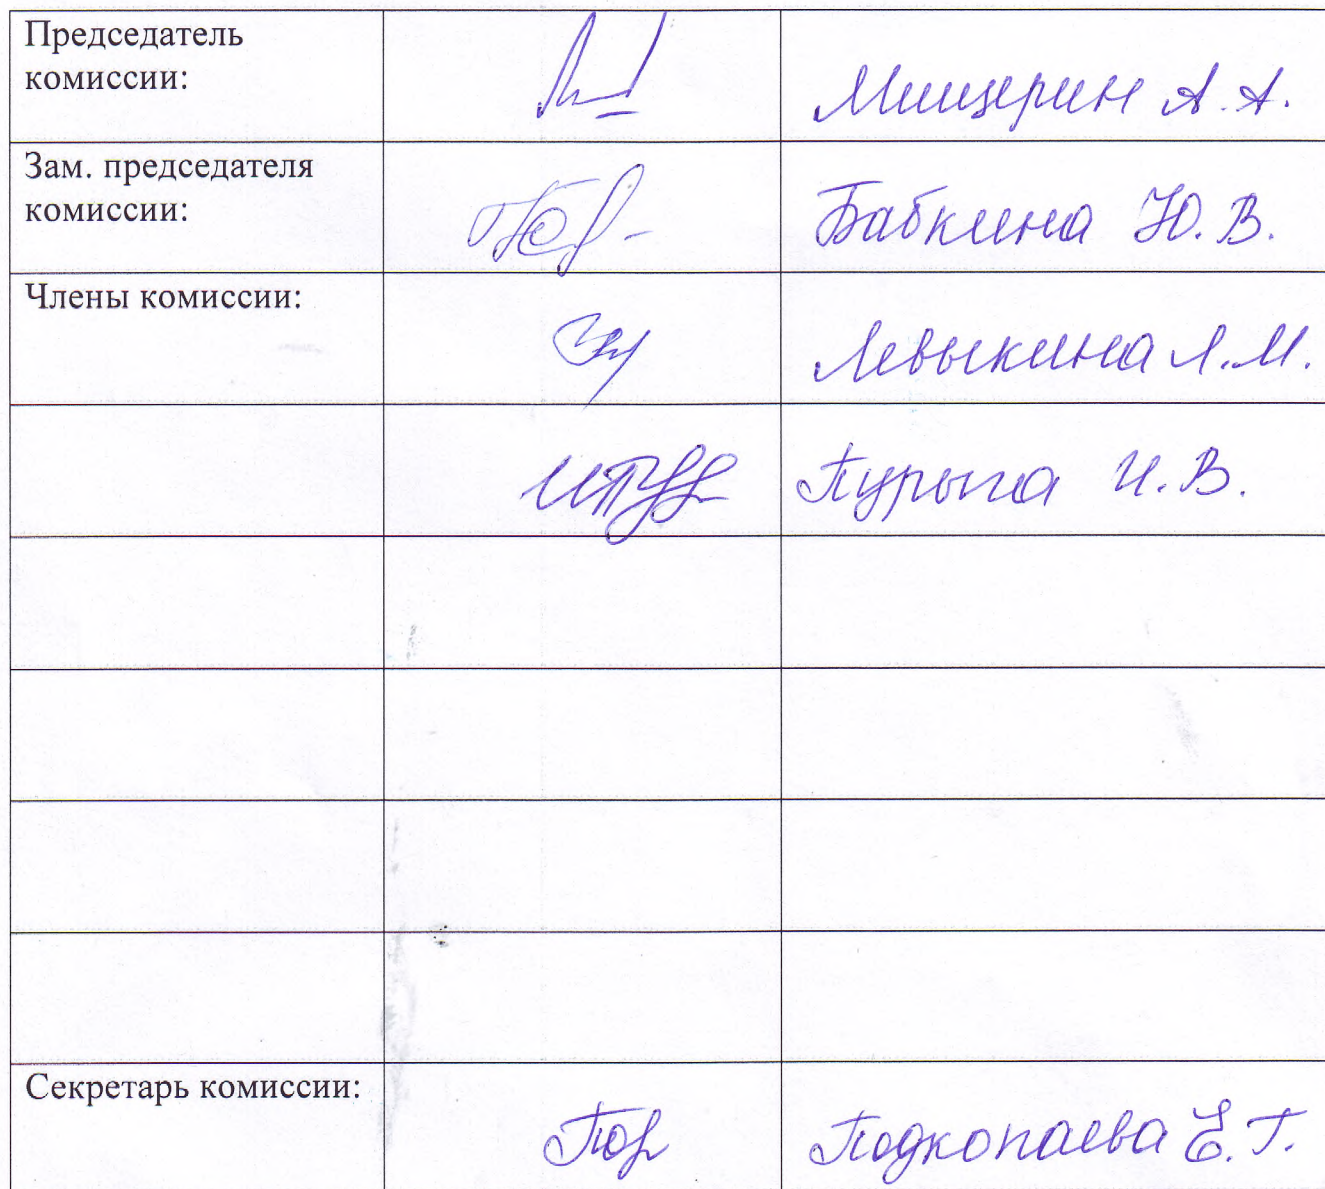 Председатель
комиссии:
Мищерин А. А.
Зам. председателя
комиссии:
Бабкина Ю. В.
Члены комиссии:
Левыкина Л. М.
Пурыга И. В.
Секретарь комиссии:
Подкопаева Е. Г.